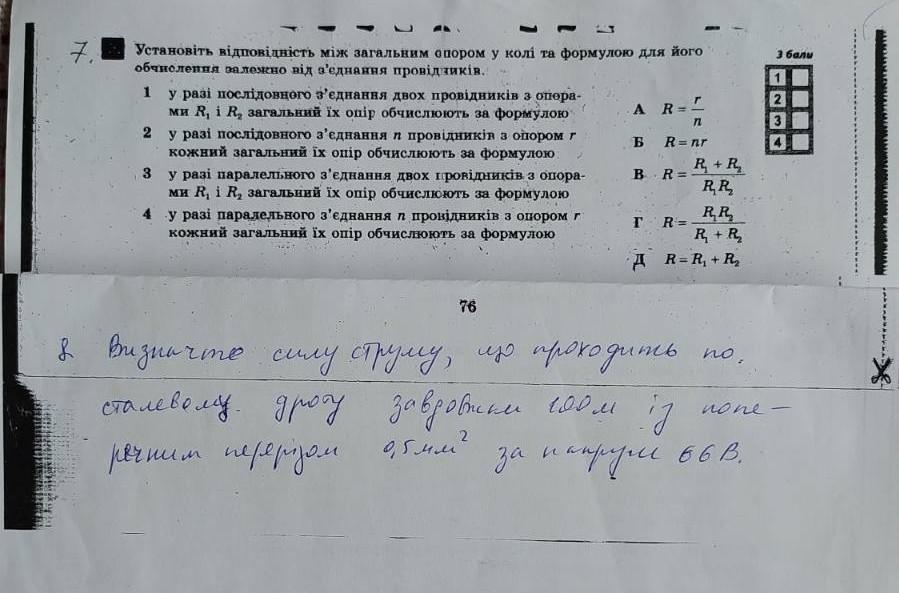 7. Установіть відповідність між загальним опором у колі та формулою для його
обчислення залежно від з'єднання провідників.
3 бали
1 у разі послідовного з'єднання двох провідників з опора-
ми R₁ і R₂ загальний їх опір обчислюють за формулою
2 у разі послідовного з'єднання n провідників з опором r
кожний загальний їх опір обчислюють за формулою
3 у разі паралельного з'єднання двох провідників з опора-
ми R₁ і R₂ загальний їх опір обчислюють за формулою
4 у разі паралельного з'єднання n провідників з опором r
кожний загальний їх опір обчислюють за формулою
А R = r/n
Б R = nr
В R = (R₁ + R₂)/(R₁R₂)
Г R = (R₁R₂)/(R₁ + R₂)
Д R = R₁ + R₂
1
2
3
4
76
8 Визначте силу струму, що проходить по
сталевому дроту завдовжки 100м із попе-
речним перерізом 0,5мм² за напруги 66В.